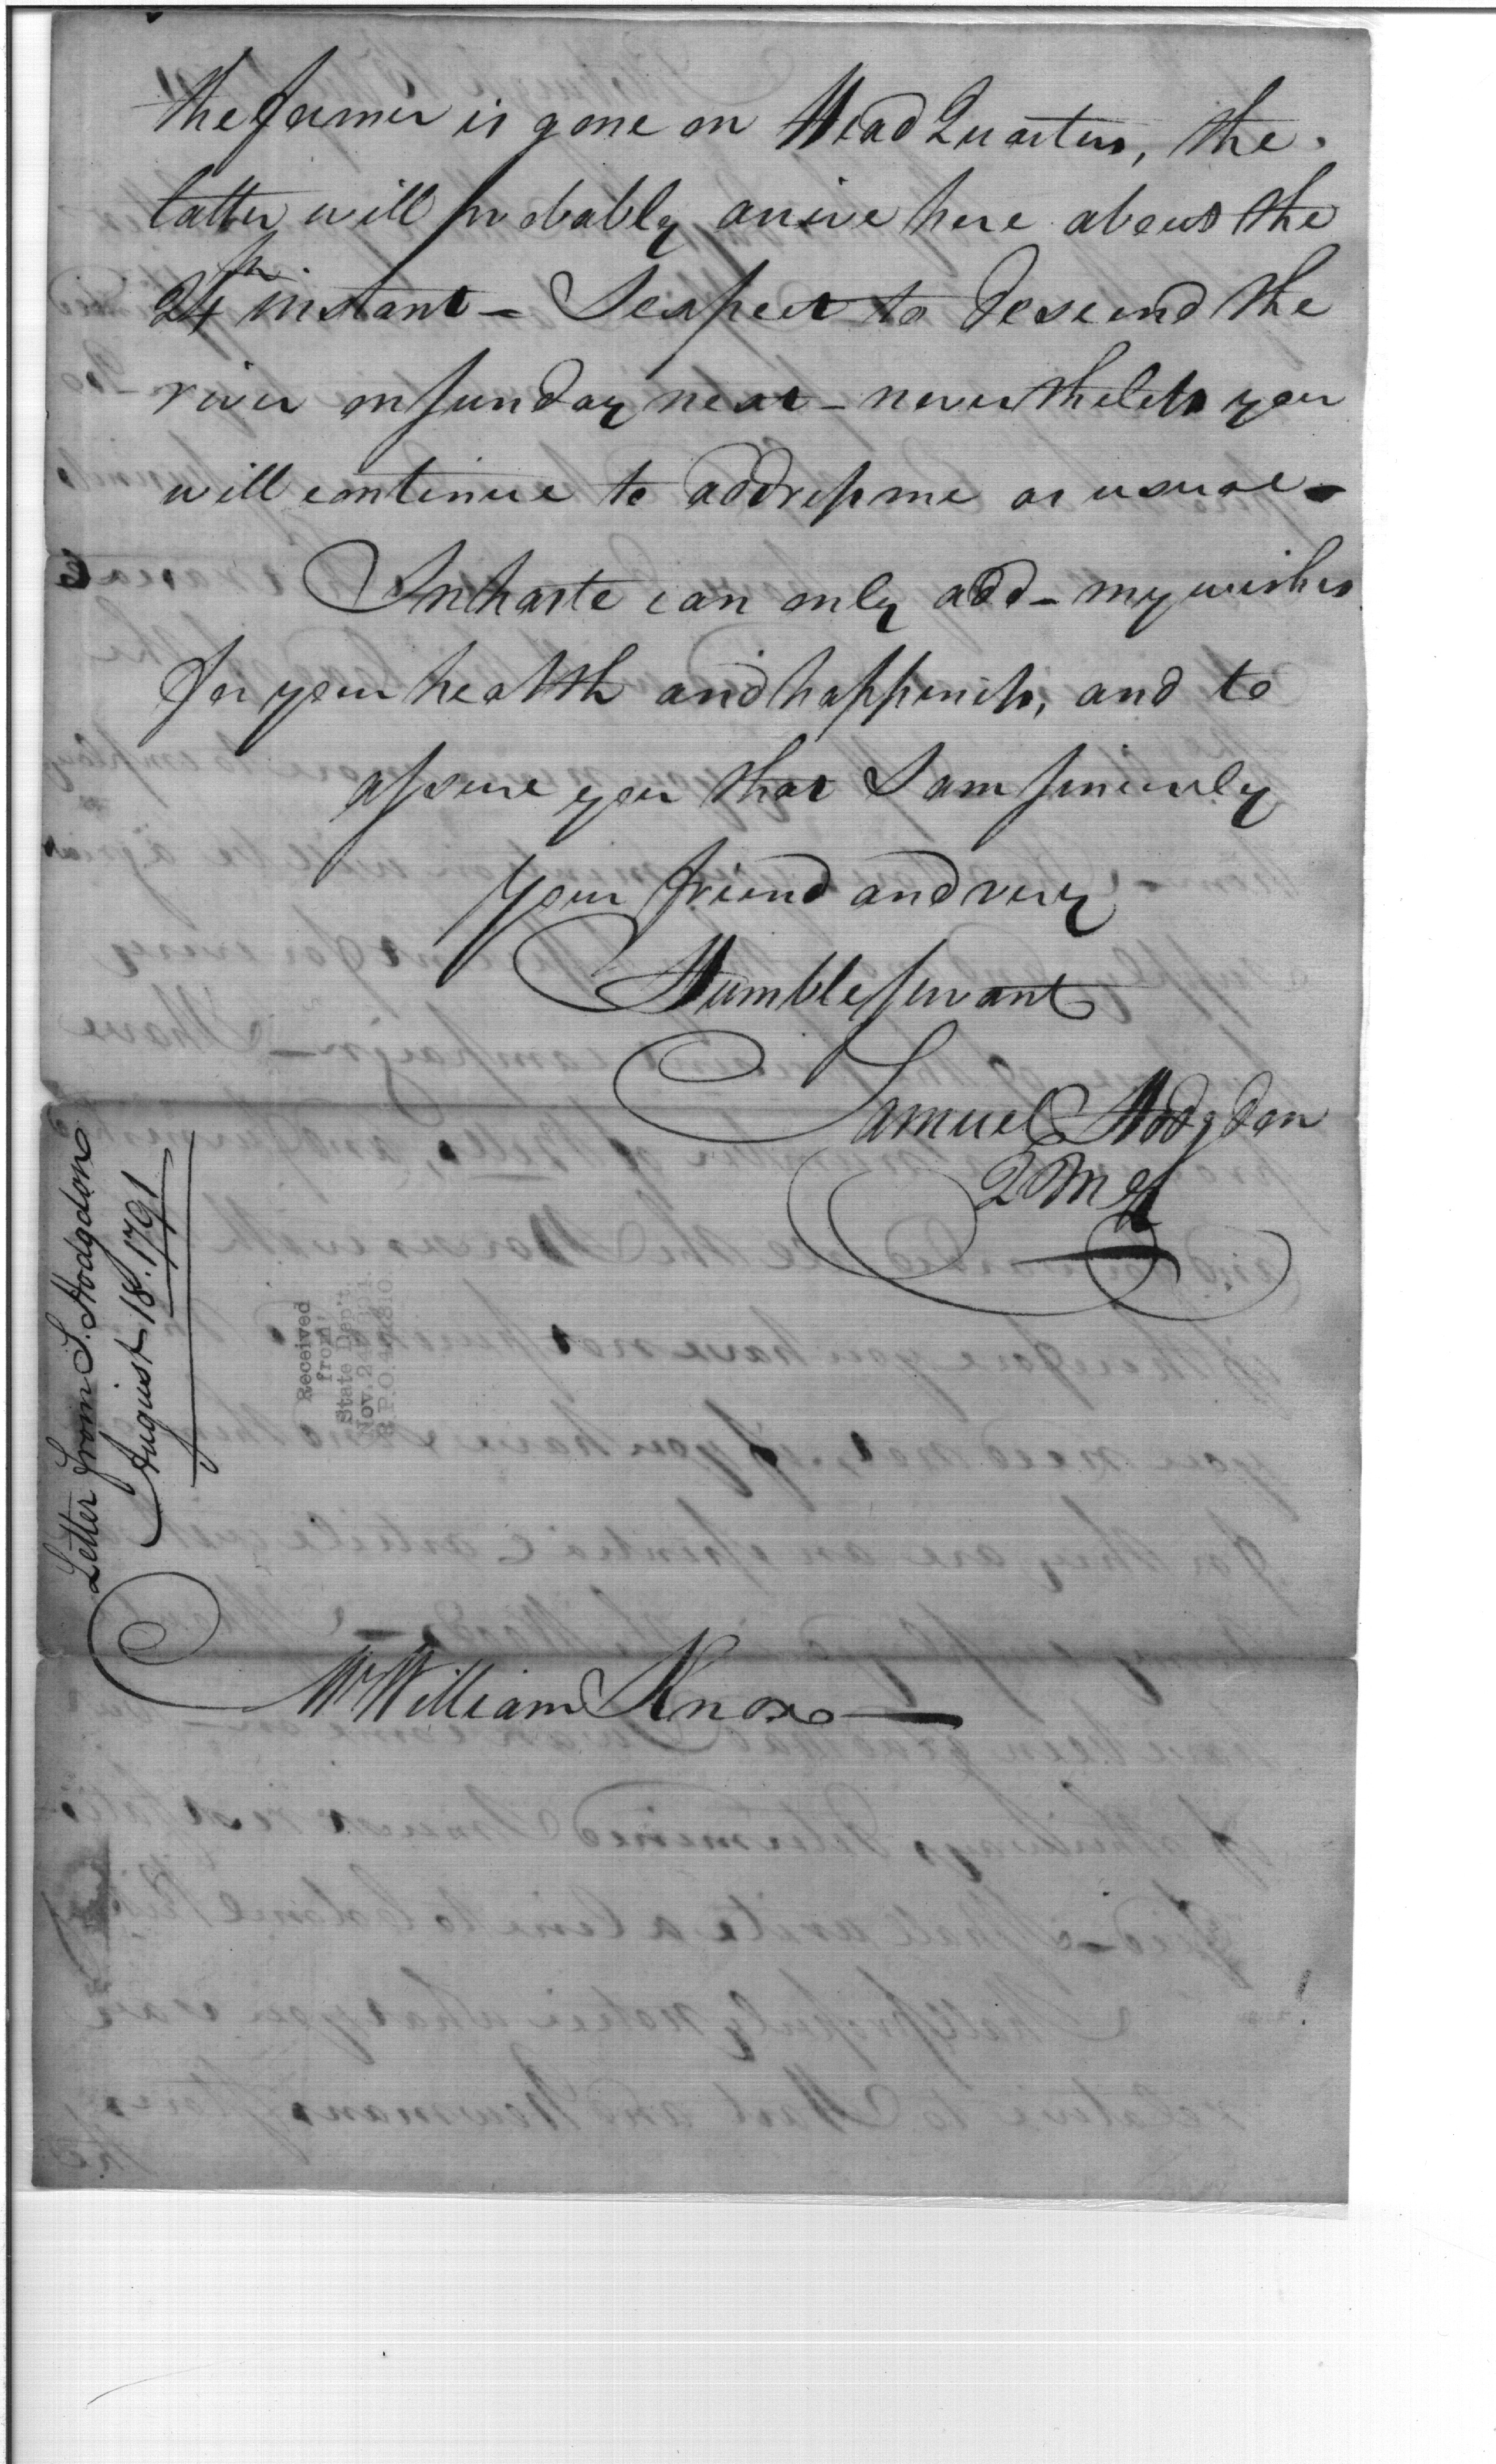 the former is gone on Head Quarters, the
latter will probably arrive here about the
24th instant – I expect to descend the
river on Sunday next – nevertheless you
will continue to address me as usual –
In haste can only add – my wishes
for your health and happiness, and to
assure you that I am sincerely
your friend and very
Humble servant
Samuel Hodgdon
QMG
Letter from S. Hodgdon
August 18. 1791
Received
from
State Dep't
Nov. 24
Mr William Knox —